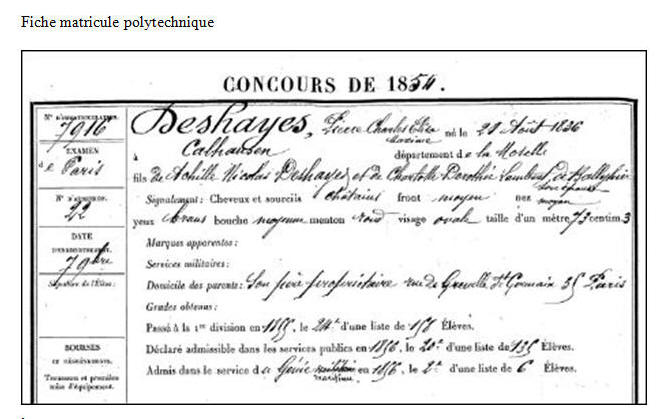 Fiche matricule polytechnique
CONCOURS DE 1854.
N° D'IMMATRICULATION.
7916
EXAMEN
de Paris
N° D'ADMISSION.
22
DATE
D'ENREGISTREMENT.
7 9bre
Signature de l'Élève:
BOURSES
ET DÉGRÈVEMENTS.
Trousseau et première
mise d'équipement.
Deshayes, Pierre Charles
Maxime né le 28 Août 1836
à Calhausen département de la Moselle
fils de Achille Nicolas Deshayes et de Charlotte Dorothée Lambert de
son épouse
Signalement: Cheveux et sourcils châtains front moyen nez moyen
yeux bruns bouche moyenne menton rond visage ovale taille d'un mètre 73 centim. 3
Marques apparentes:
Services militaires:
Domicile des parents: Son père propriétaire rue de Grenelle St Germain 35 Paris
Grades obtenus:
Passé à la 1re division en 1855, le 24e d'une liste de 158 Élèves.
Déclaré admissible dans les services publics en 1856, le 20e d'une liste de 135 Élèves.
Admis dans le service du Génie maritime en 1856, le 2e d'une liste de 6 Élèves.